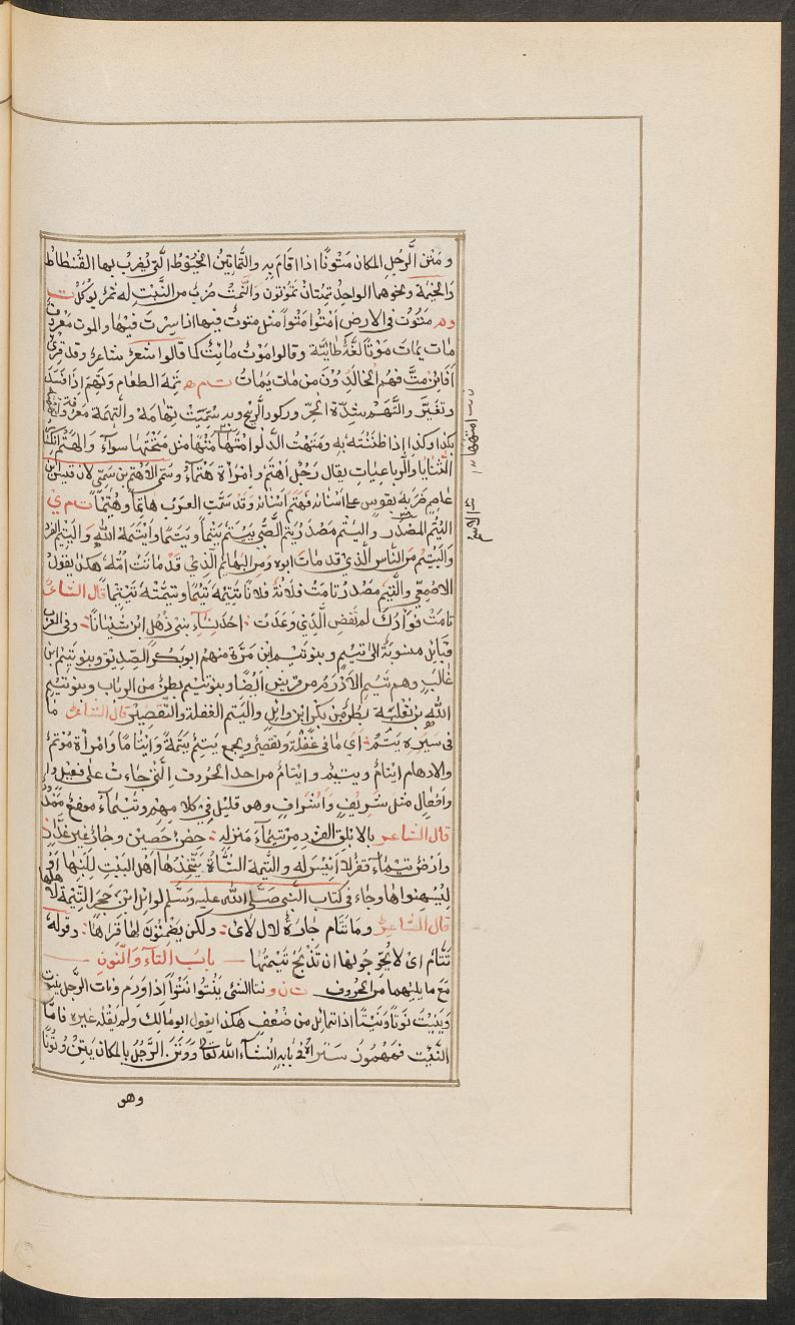 ومَتَن الرَّجُل بالمكان مَتُونًا اذا اقَامَ به والتَّمَاتِينُ الخيُوْطُ الَّتي يُضرَبُ بها الفُسْطاطُ
وَالخيْمَة ونحوهما الواحِدُ تِمتَان تَمُوتون وَالتَّمْتُ ضربٌ من النَّبْتِ له ثمرٌ يُوكَلُ ت
وم مَتَوْتُ في الارض اَمْتُوا مَتْواً مثل مطوتُ فيها اذا سِرتَ فيها والموت معْروفٌ
مات يمَاتُ مَوْتًا لغَةٌ طائيَّة وقالوا مَوْتٌ مائِتٌ كما قالوا شعرٌ شاعِرٌ وقد قرئ
اَفَإِن مِتَّ فهُم الخَالِدُوْنَ من مَات يَمَاتُ ت م ه تَمِهَ الطعَام وَتَهِمَ اذا فسَدَ
وتغيَّر والتَّهَمُ شِدَّة الحَرّ وركود الرِّيح وبه سُمِّيَتْ تِهَامَة والتُّهَمَة معرُفة واتهمته
بكذا وكذا اِذا ظنَنْتَه به ومَتَهْتُ الدَّلوَ امْتَهُهَا مَتْهًا مثل مَتَحْتُهَا سواءٌ والهَتْمُ انكِسَارُ
الثنايَا والرباعِيَات يقال رَجُل اَهْتَمُ وامْرأة هَتْمَاءُ وسمّى الاهتم بن سمّى لان قيس بن
عَاصِم ضَرَبَهُ بقوسٍ على اسْنانه فهتَمَ اسْنانه وقد سَمَّت العرَبُ هاتِمًا وهُتَيْمًا ت م ي
اليُتْم المَصْدَر واليُتْم مَصْدَرُ يَتِمَ الصَّبي يَيْتَم يَتْماً ويَيْتَمُ واَيْتَمهُ الله وَاليَتِيم الفرد
وَاليَتِيْم من النَّاس الَّذي قد مات ابوه ومن البَهائِم الَّذِي قدْ مَاتَتْ اُمُّهُ هكذا يقولُ
الاصْمَعي والتَّيْم مَصْدرُ تامَتْ فلانةُ فلانًا تَتِيْمُهُ تَيْمًا وتَيَّمَتْهُ تَتْيِيمًا قال الشاعرُ
تامَتْ فُوَادَكَ لم تقضِ الَّذِي وَعَدَتْ ؛ احدى نِسَاءِ بني ذُهْلِ ابْن شَيْبَانَا ؛ وفي العرَب
قبَايل منسُوبَةٌ الى تَيْمٍ وبنو تَيْم ابن مُرَّة منهم ابوبَكرٍ الصِّديق وبنو تَيْمِ ابن
غَالِبٍ وهم تَيْم الاَدْرَم من قريش اَيْضًا وبنو تَيْم بطنٌ من الرباب وبنو تيم
اللهِ بن ثعلَبَة بطن من بَكر ابن وايل واليَتْم الغفلة والتَّقصِيْر قال الشاعر مَا
في سَيْرِه يَتَمُ ؛ اَي ما في غَفْلَة وتقصيرٍ ويجمع يَتِيْمٌ يَتَمَةً وَايْتَامًا وَامْراَة مُوْتمٌ
والادهام ايتامٌ ويتيم وايتام من احد الحُروف الَّتي جاءت على فعيل
وافعَال مثل شَرِيفٍ وَاشْرَافٍ وهو قليل في كلامهِم وتَيْماءُ موضعٌ
قال الشاعر بالابلق الفردِ من تيماءَ منزله ؛ حِصْنٌ حَصِين وجارٌ غير غدَّارِ
وارضٌ تيماء قفرٌ لا انِيْسَ له والتِيمة الشَّاة يَتَّخِذُهَا اَهل البَيْت لِلبَنِهَا اَوْ
وجاء في كتاب النَّبي صَلّى الله عليه وسَلّم لوائل ابْن حُجر التِّيمَة لا هلها
قال الشاعر وما تتّام جارَةُ لال لاي ؛ ولكن يضْمِنُوْنَ لها قِرَاهَا ؛ وقوله
تَتَّام اى لا تُحِوج جُولها ان تَذْبَحَ تيمتَها — بابُ التّاءِ وَالنّونِ —
مَعَ ما يليْهِما من الحُروف ت ن و نتا الشَئي يَنْتُوا نتْوًا اذا وَرِم ونات الرَّجُل ينيت
وَيَنُوْت نَوْتًا وَنَيْتًا اذا تمايل من ضُعْفٍ هكذا يقول ابومَالِكٍ ولم يَقُلْه غيره فامَّا
النَّئِيت فمَهْمُوزٌ ستراهُ في بابه اِنشَآءَ الله تعَالى وَوَتَن الرَّجُلُ بالمكان يَتِنُ وُتُونًا
وهو